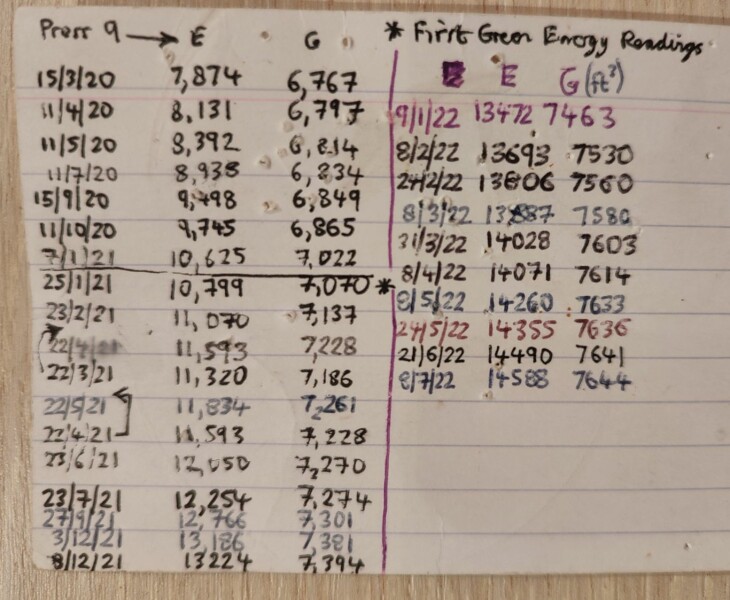 Press 9 → E G
15/3/20 7,874 6,767
11/4/20 8,131 6,797
11/5/20 8,392 6,814
11/7/20 8,938 6,834
15/9/20 9,498 6,849
11/10/20 9,745 6,865
7/1/21 10,625 7,022
25/1/21 10,799 7,070 *
23/2/21 11,070 7,137
22/4/21 11,593 7,228
22/3/21 11,320 7,186
22/5/21 11,834 7,261
22/4/21 11,593 7,228
23/6/21 12,050 7,270
23/7/21 12,254 7,274
27/9/21 12,766 7,301
3/12/21 13,186 7,381
8/12/21 13224 7,394
* First Green Energy Readings
E G (ft³)
9/1/22 13472 7463
8/2/22 13693 7530
24/2/22 13806 7560
8/3/22 13887 7580
31/3/22 14028 7603
8/4/22 14071 7614
8/5/22 14260 7633
24/5/22 14355 7636
21/6/22 14490 7641
8/7/22 14588 7644